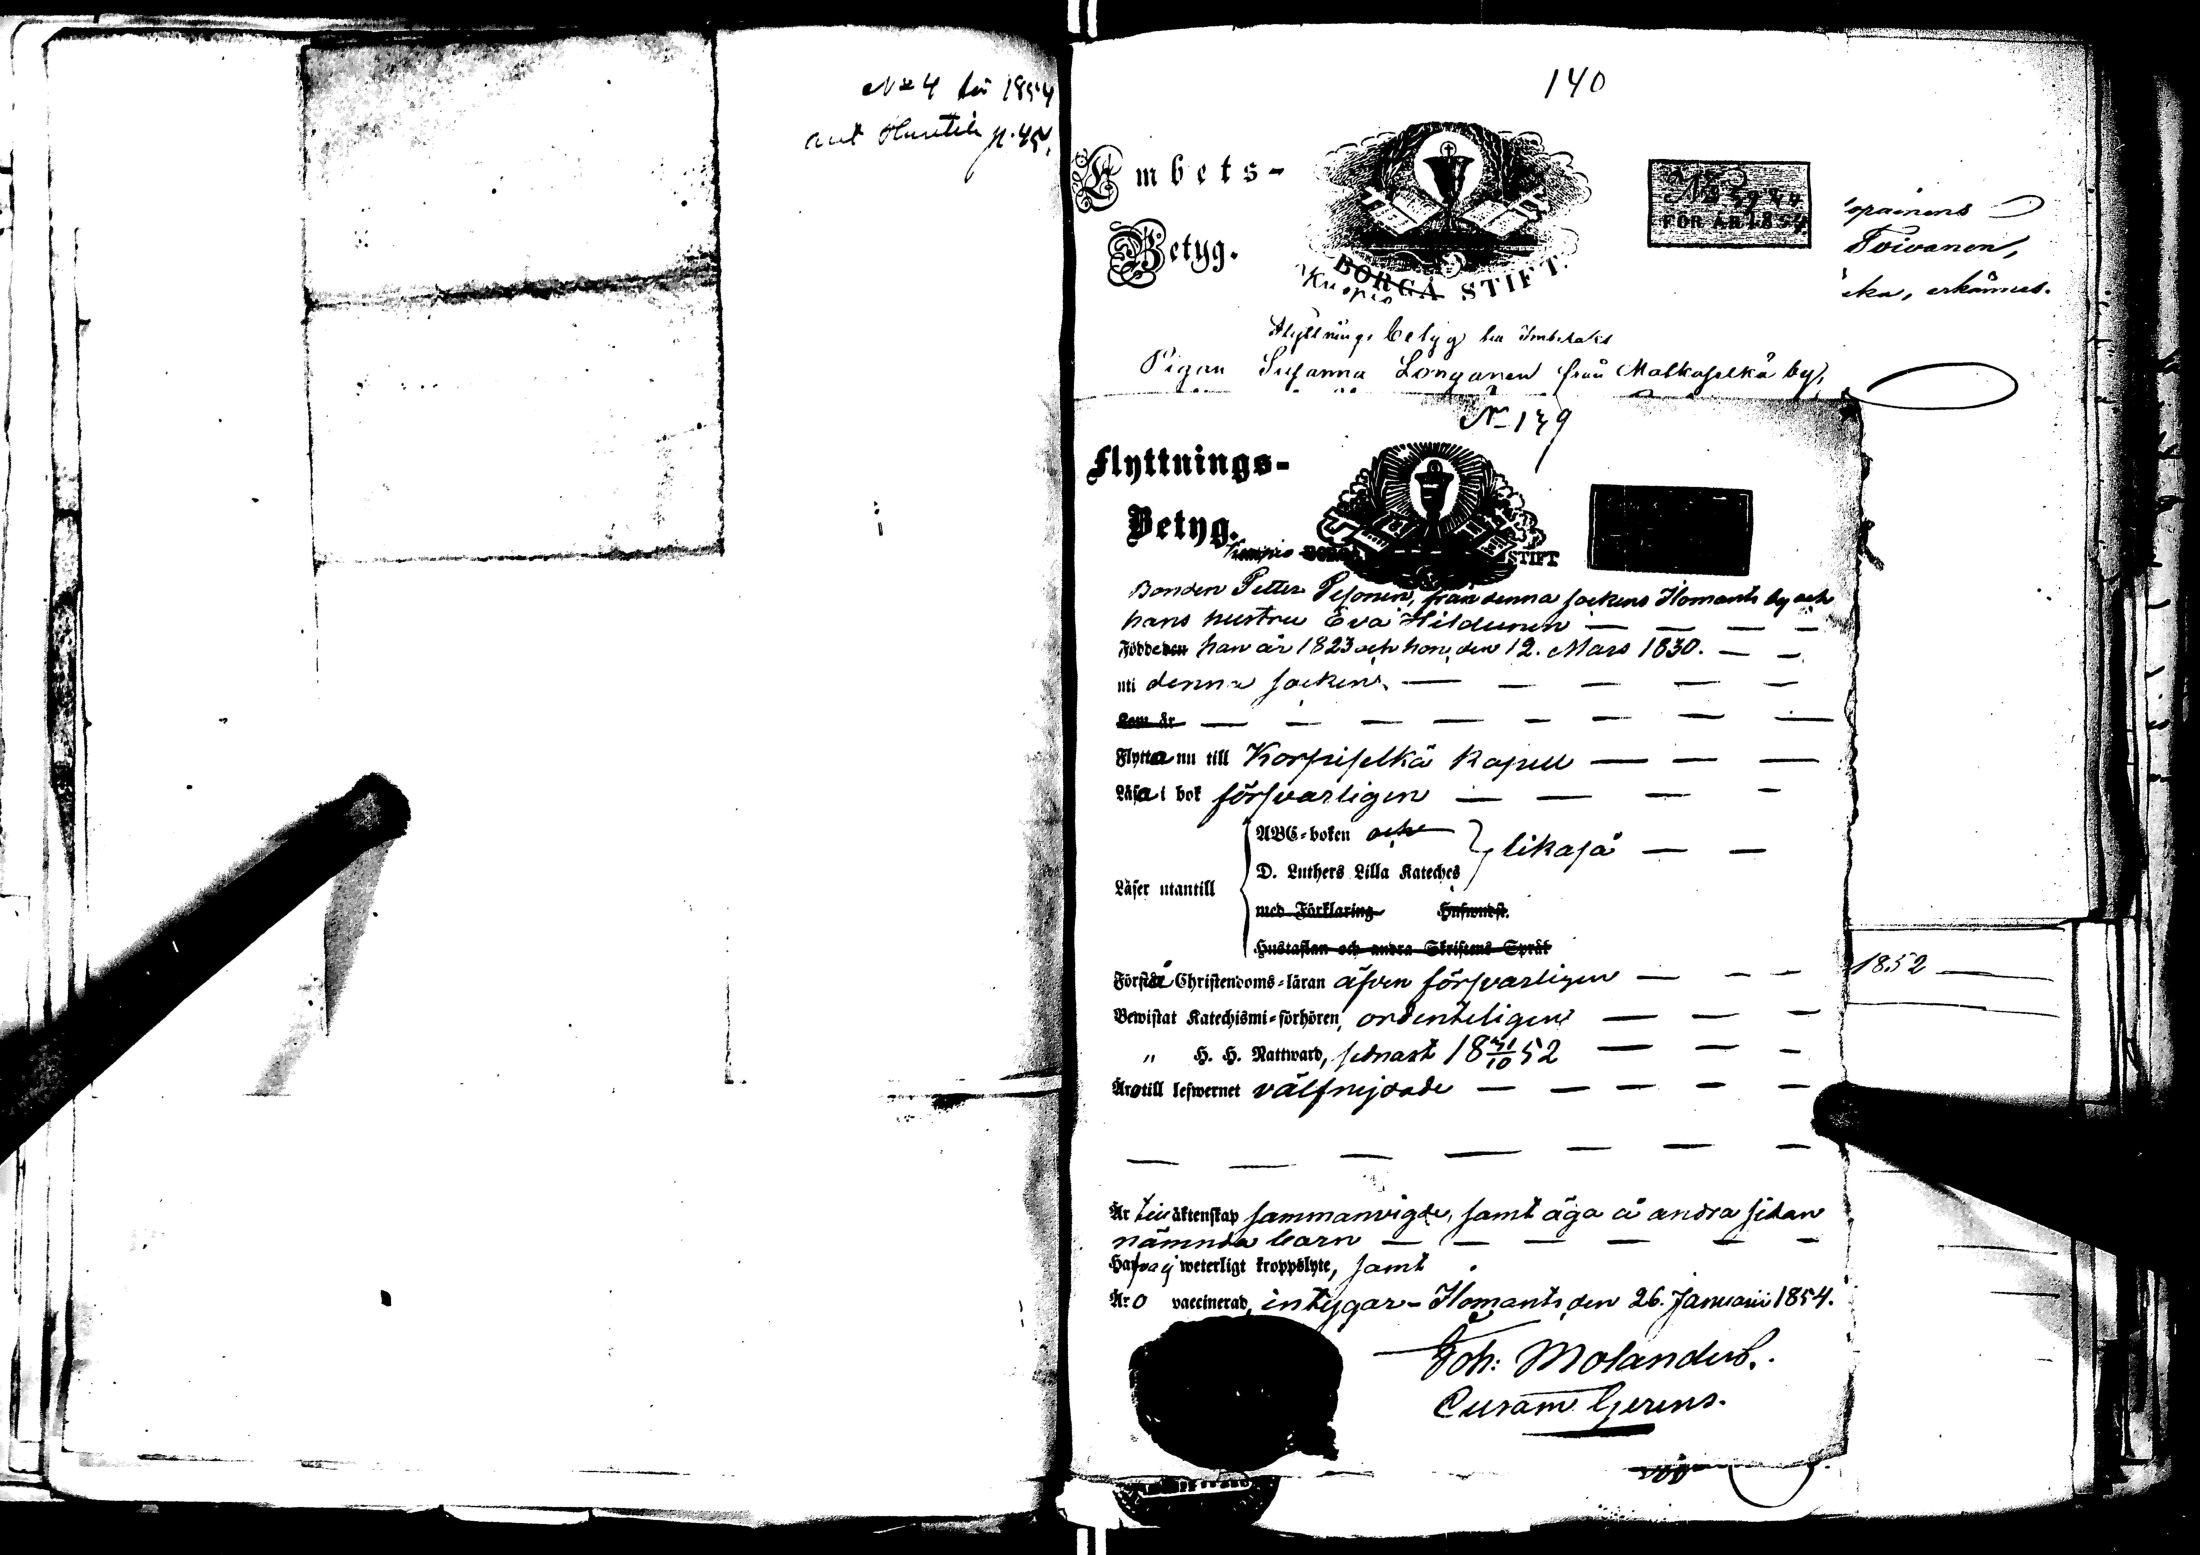 No 4 för 1854
140
Embets-
Betyg.
BORGÅ STIFT.
Kuopio
FÖR ÅR 1854
Toivanen,
erkännes.
Flyttnings betyg
Pigan Susanna Longanen från Matkaselkä by,
No 139
Flyttnings-
Betyg.
Kuopio STIFT
Bonden Petter Pesonen, från denna sockens Ilomants by och
hans hustru Eva Hildunen
Födde den han år 1823 och hon, den 12. Mars 1830.
uti denna socken.
Kom år
Flytta nu till Korpiselkä kapell
Läsa i bok försvarligen
ABC-boken och
likaså
D. Luthers Lilla Kateches
Läser utantill
med Förklaring
Hustaflan och andra Skriftens Språk
Förstå Christendoms-läran äfven försvarligen
Bewistat Katechismi-förhören, ordenteligen
" H. H. Nattward, sednast 18 31/10 52
Äro till lefwernet välfrejdade
Är till äktenskap sammanvigde, samt äga å andra sidan
nämnda barn
Hafva ej weterligt kroppslyte, samt
Äro vaccinerad, intygar - Ilomants, den 26. Januarii 1854.
Joh: Molander.
Curam Gerens.
1852